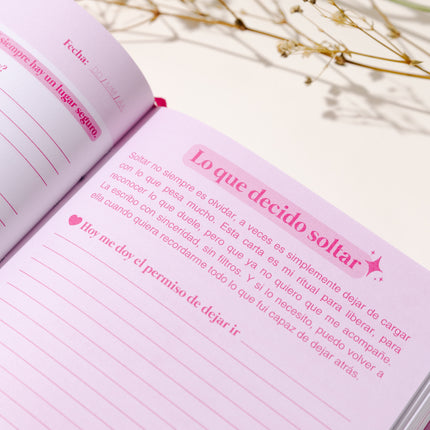 Fecha:
siempre hay un lugar seguro.
?
Lo que decido soltar
Soltar no siempre es olvidar, a veces es simplemente dejar de cargar
con lo que pesa mucho. Esta carta es mi ritual para liberar, para
reconocer lo que duele, pero que ya no quiero que me acompañe.
La escribo con sinceridad, sin filtros. Y si lo necesito, puedo volver a
ella cuando quiera recordarme todo lo que fui capaz de dejar atrás.
Hoy me doy el permiso de dejar ir